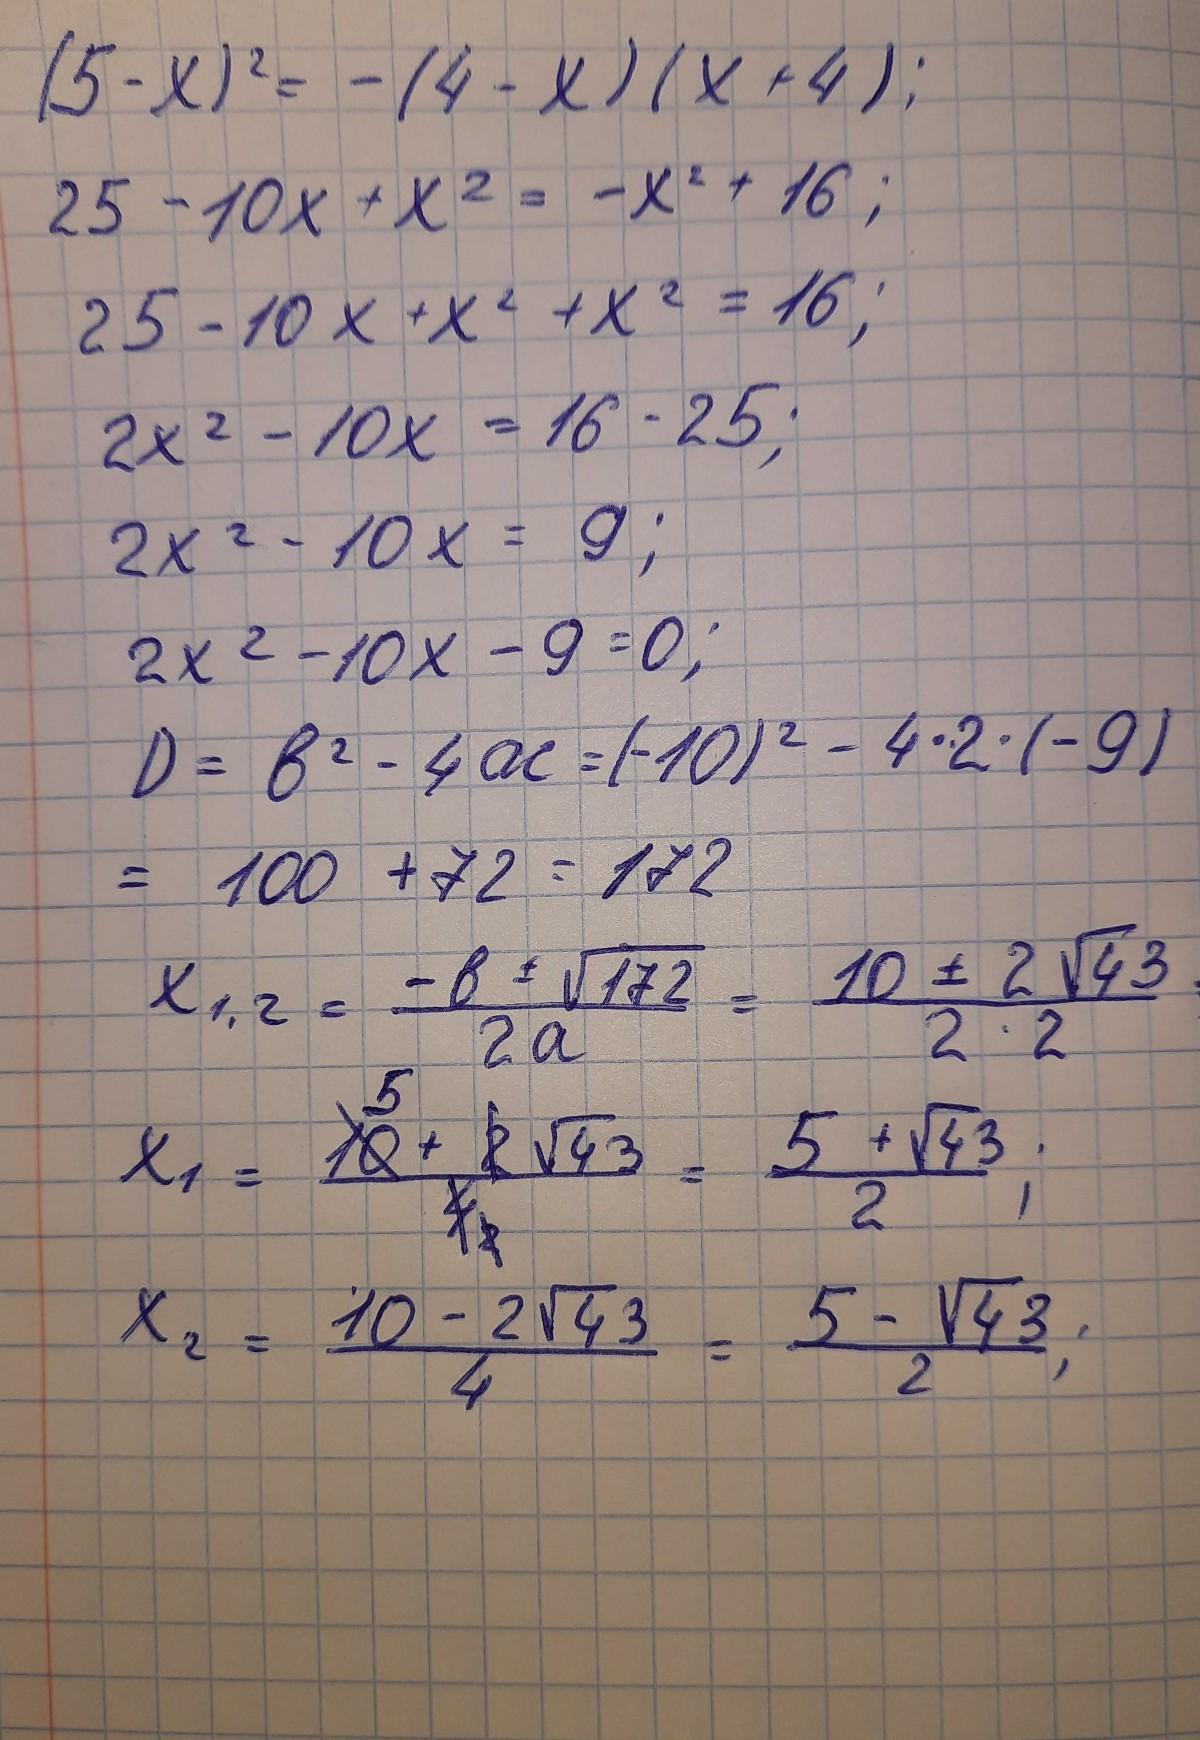 (5-x)² = -(4-x)(x+4);
25-10x+x² = -x²+16;
25-10x+x²+x² = 16;
2x²-10x = 16-25;
2x²-10x = 9;
2x²-10x-9=0;
D = b²-4ac=(-10)²-4·2·(-9)
= 100+72=172
x₁,₂ = (-b±√172)/(2a) = (10±2√43)/(2·2)
5
x₁ = (10+2√43)/4 2 = (5+√43)/2;
x₂ = (10-2√43)/4 = (5-√43)/2;